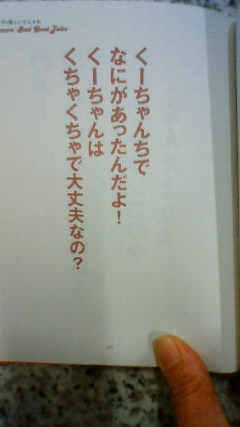 くーちゃんちで
なにがあったんだよ！
くーちゃんは
くちゃくちゃで大丈夫なの？